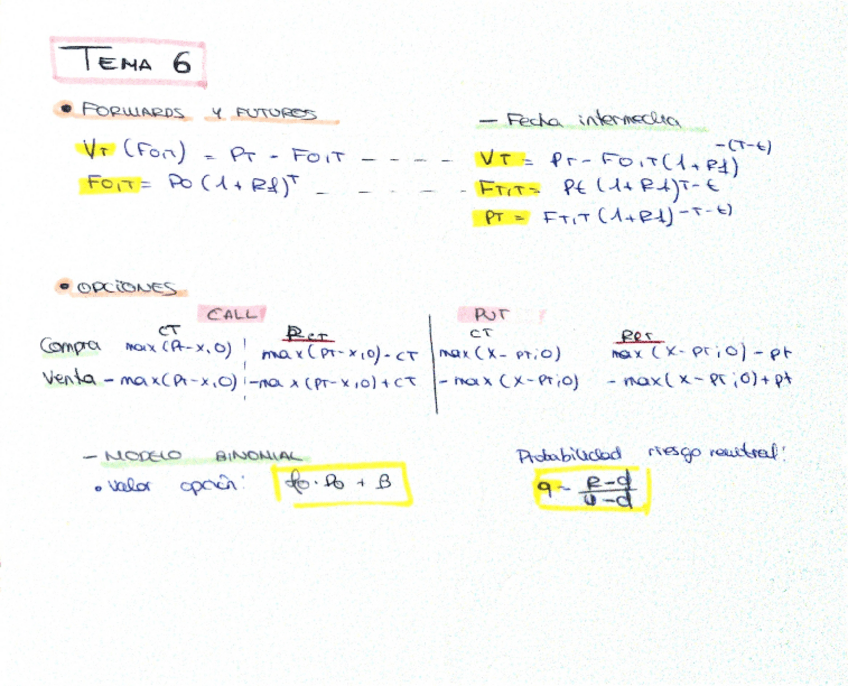 TEMA 6
• FORWARDS Y FUTUROS
VT (FO,T) = PT - FO,T - - - -
FO,T = PO (1 + Rf)^T - - - -
- Fecha intermedia
VT = PT - FO,T (1 + Rf)^-(T-t)
FT,T = Pt (1 + Rf)^T-t
PT = FT,T (1 + Rf)^-T-t)
• OPCIONES
CALL PUT
CT RCT CT RPT
Compra max (PT-x,0) max (PT-x,0) - CT max (X - PT;0) max (X - PT;0) - pt
Venta - max (PT-x,0) - max (PT-x,0) + CT - max (X-PT;0) - max (X - PT;0) + pt
- MODELO BINOMIAL
• Valor opción: · PO + B
Probabilidad riesgo neutral:
q - R-d / U-d